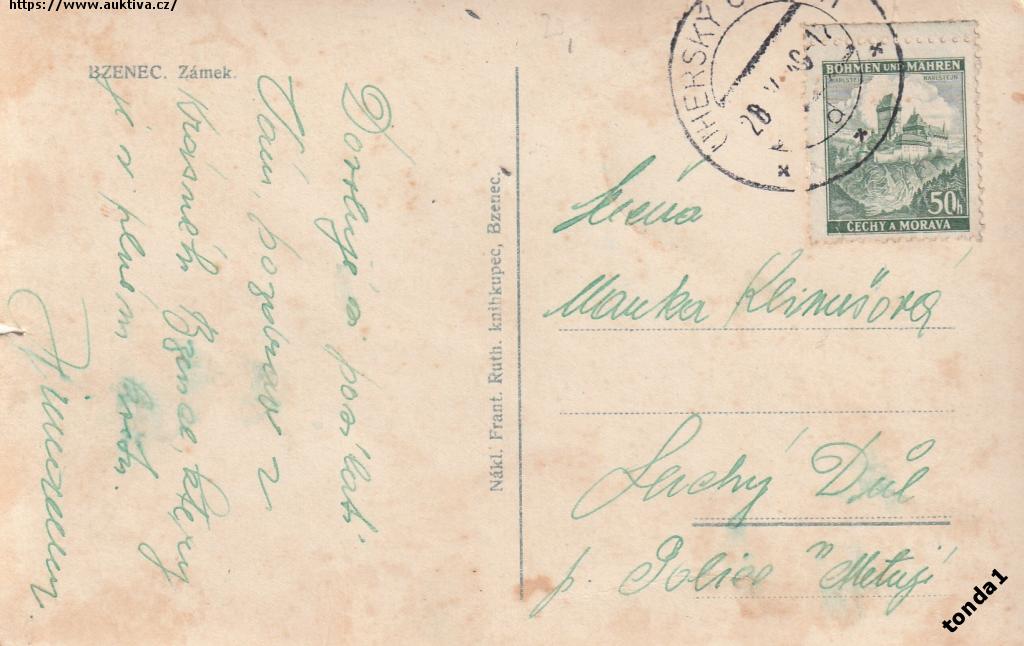 https://www.auktiva.cz/
BZENEC. Zámek.
Dovoluji a poslati
Vám pozdrav z
krásneho Bzence, který
je v plném
Nákl. Frant. Ruth. knihkupec, Bzenec.
UHERSKÝ
28
BÖHMEN UND MÄHREN
KARLSTEIN
KARLSTEJN
50h
ČECHY A MORAVA
Slečna
Manka Klimešová
Suchý Důl
p. Police n Metují
tonda1